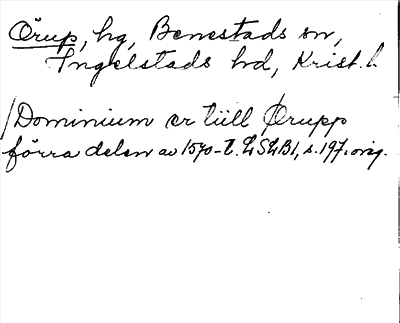 Örup, hg, Benestads sn,
Ingelstads hd, Krist. l.
/Dominium er tiill Ørupp
förra delen av 1570-t. LSLB1, s. 197. orig.